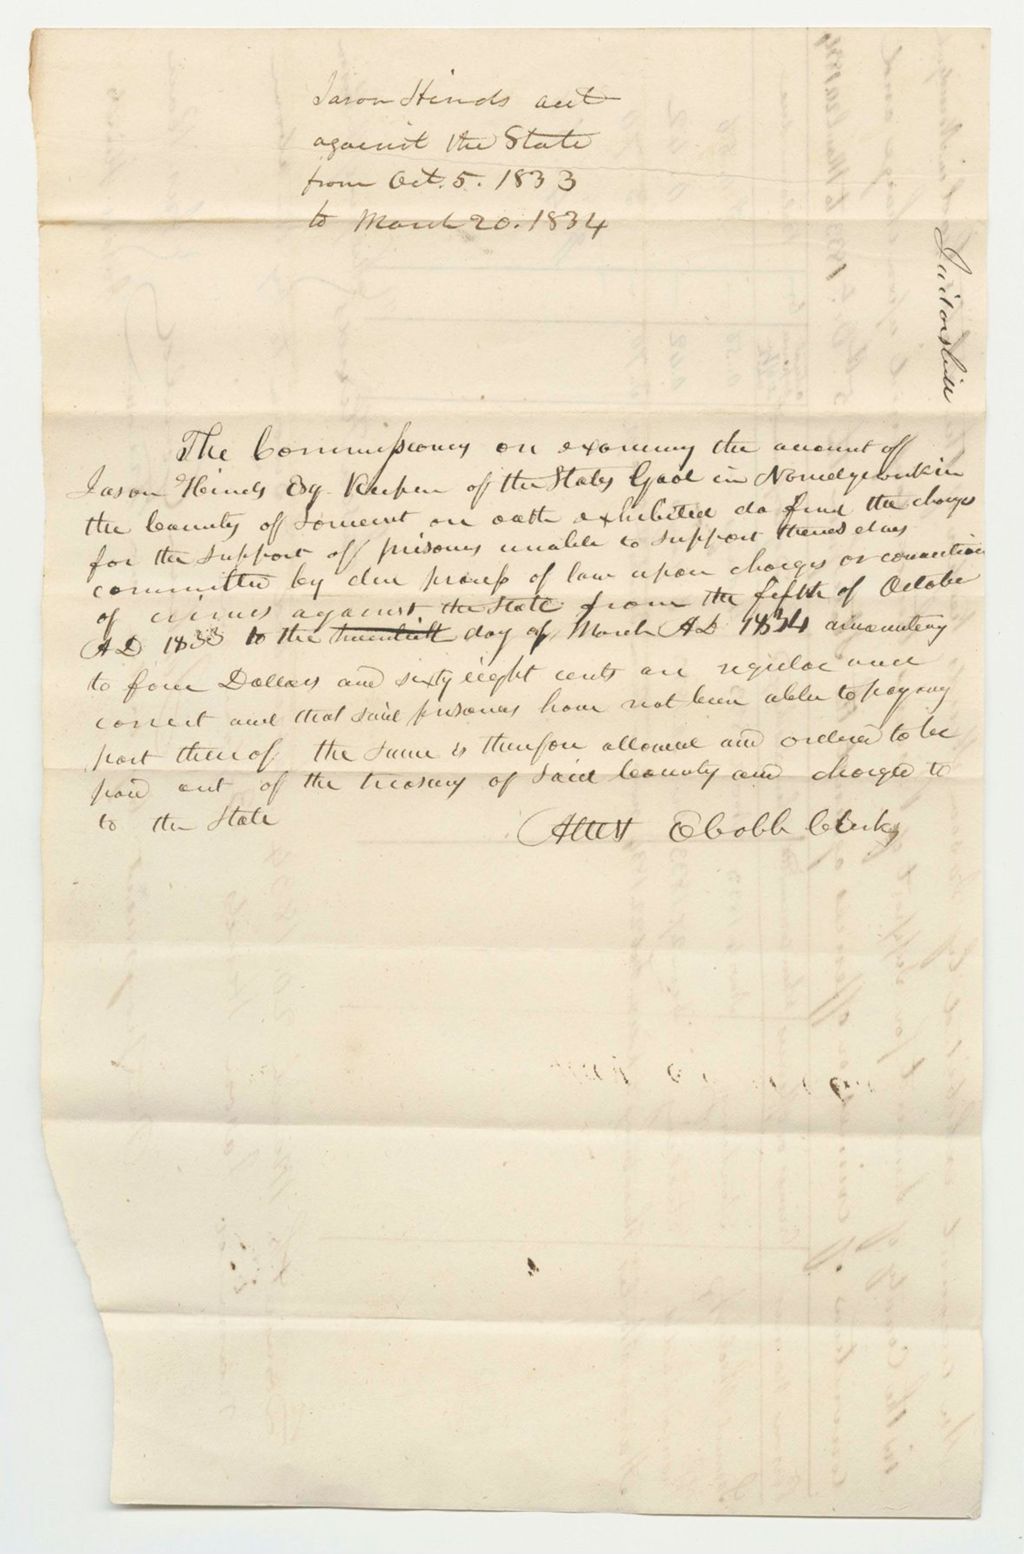 Jason Hinds acct
against the State
from Oct. 5. 1833
to March 20. 1834
The Commissioners on examing the account off
Jason Hinds Esq. Keeper of the States Gaol in Norridgewock in
the County of Somerset on oath exhibited do find the charges
for the support off prisoners unable to support themselves
committed by due process of law upon charges or conviction
of crimes against the State from the fifth of October
AD 1833 to the twentieth day of March AD 1834 amounting
to four Dollars and sixty eight cents are regular and
correct and that said prisoners have not been able to pay any
part thereof the same is therefore allowed and ordered to be
paid out of the treasury of said County and charged to
to the State
Attest E Cobb Clerk